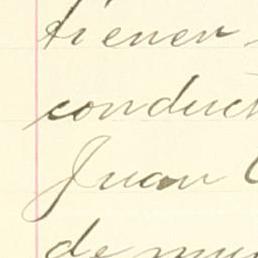 tienen
conduct
Juan
de mu